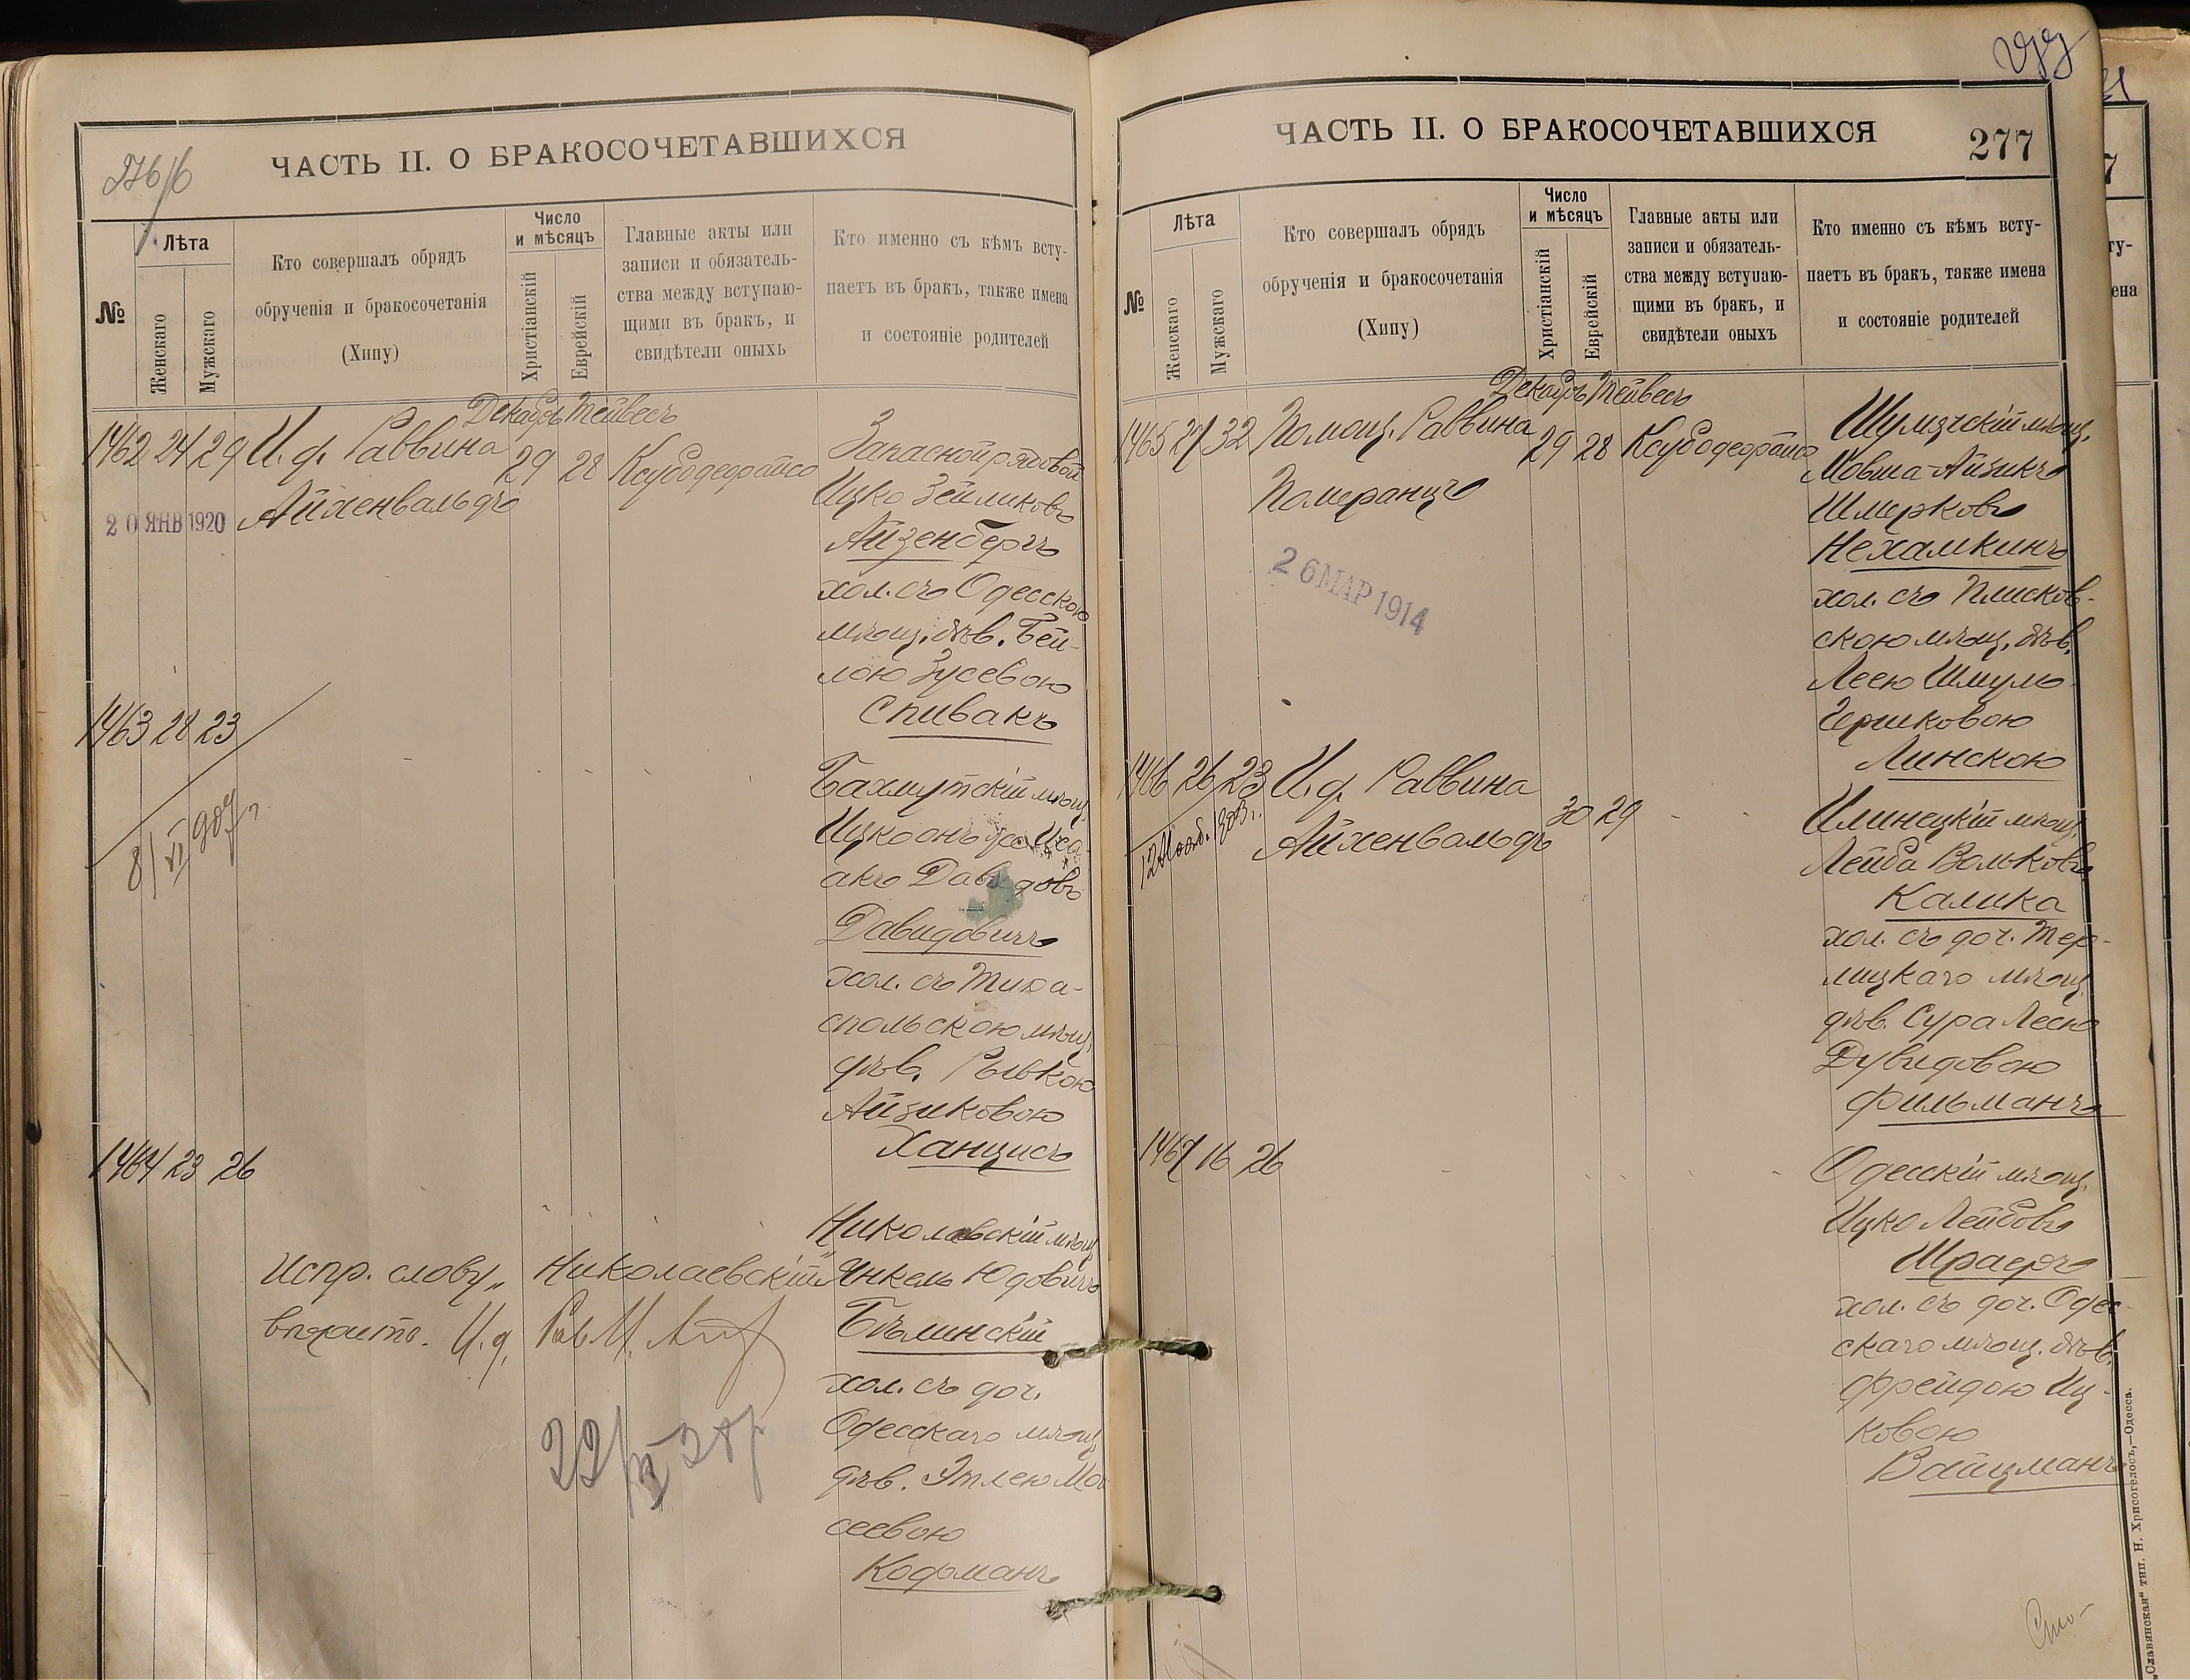 276/б
ЧАСТЬ II. О БРАКОСОЧЕТАВШИХСЯ
№
Лѣта
Женскаго
Мужскаго
Кто совершалъ обрядъ
обрученія и бракосочетанія
(Хипу)
Число
и мѣсяцъ
Христіанскій
Еврейскій
Главные акты или
записи и обязатель-
ства между вступаю-
щими въ бракъ, и
свидѣтели оныхъ
Кто именно съ кѣмъ всту-
паетъ въ бракъ, также имена
и состояніе родителей
Декабрь Тейвесъ
1462 24 29 И. д. Раввина 29 28 Запасной рядовой
Айхенвальдъ Ицко Зейликовъ
2 0 ЯНВ 1920
Айзенбергъ
хол. съ Одесскою
мѣщ. дѣв. Бей-
лою Зусевою
Спивакъ
1463 28 23
Бахмутскій мѣщ.
Ицко онъ же Иса-
акъ Давидовъ
Давидовичъ
хол. съ Тира-
спольскою мѣщ.
дѣв. Рывкою
Айзиковою
Ханцисъ
8/VI 907 г.
1464 23 26
Николаевскій мѣщ.
Янкель Юдовичъ
Бѣлинскій
хол. съ доч.
Одесскаго мѣщ.
дѣв. Этлею Мои-
сеевою
Кофманъ
Испр. слову „Николаевскій"
вѣрить. И. д. Рав.
ЧАСТЬ II. О БРАКОСОЧЕТАВШИХСЯ
277
№
Лѣта
Женскаго
Мужскаго
Кто совершалъ обрядъ
обрученія и бракосочетанія
(Хипу)
Число
и мѣсяцъ
Христіанскій
Еврейскій
Главные акты или
записи и обязатель-
ства между вступаю-
щими въ бракъ, и
свидѣтели оныхъ
Кто именно съ кѣмъ всту-
паетъ въ бракъ, также имена
и состояніе родителей
Декабрь Тейвесъ
1465 27 32 Помощ. Раввина 29 28 Шумячскій мѣщ.
Померанцъ Мовша-Айзикъ
Шмерковъ
Нехамкинъ
хол. съ Плисков-
скою мѣщ. дѣв.
Леею Шмуль-
Гершковою
Линскою
2 6 МАР 1914
1466 26 23 И. д. Раввина 30 29 Илинецкій мѣщ.
Айхенвальдъ Лейба Вольковъ
Калика
хол. съ доч. Тер-
лицкаго мѣщ.
дѣв. Сура Леею
Дувидовою
Фильманъ
1467 16 26
Одесскій мѣщ.
Ицко Лейбовъ
Шраеръ
хол. съ доч. Одес-
скаго мѣщ. дѣв.
Фрейдою Иц-
ковою
Вайцманъ
„Славянская" тип. Н. Хрисогелосъ,—Одесса.